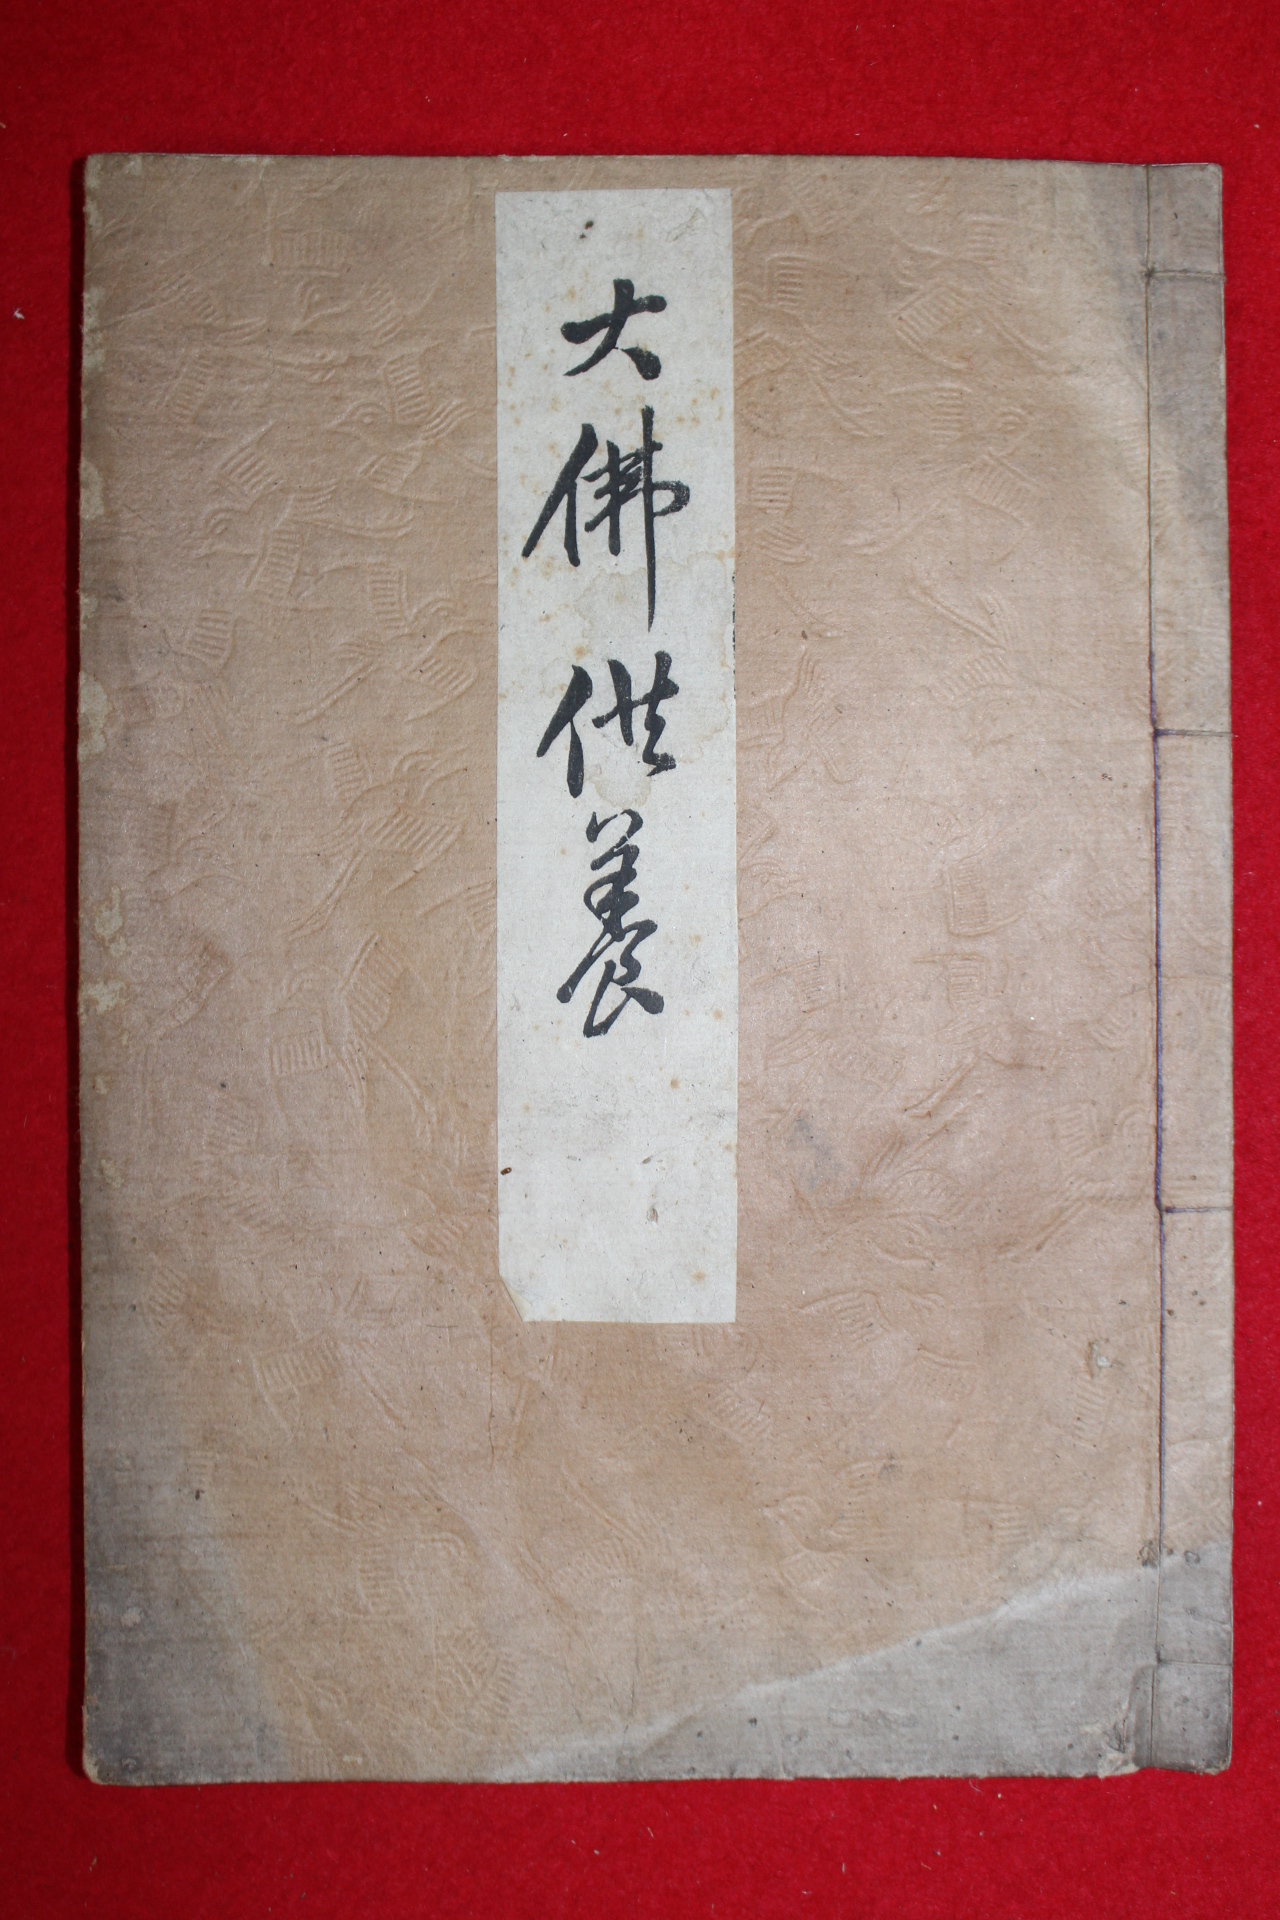 大佛供養